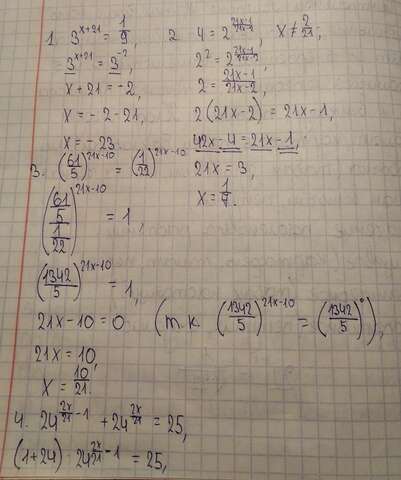 1. 3^{x+21} = \frac{1}{9},
3^{x+21} = 3^{-2},
x + 21 = -2,
x = -2 - 21,
x = -23.
2. 4 = 2^{\frac{21x-1}{21x-2}}, x ≠ \frac{2}{21};
2^2 = 2^{\frac{21x-1}{21x-2}},
2 = \frac{21x-1}{21x-2},
2(21x-2) = 21x-1,
42x - 4 = 21x - 1,
21x = 3,
x = \frac{1}{7}.
3. (\frac{61}{5})^{21x-10} = (\frac{1}{22})^{21x-10}
(\frac{\frac{61}{5}}{\frac{1}{22}})^{21x-10} = 1,
(\frac{1342}{5})^{21x-10} = 1,
21x-10 = 0 (т.к. (\frac{1342}{5})^{21x-10} = (\frac{1342}{5})^0),
21x = 10,
x = \frac{10}{21}.
4. 24^{\frac{2x}{21}-1} + 24^{\frac{2x}{21}} = 25,
(1+24) · 24^{\frac{2x}{21}-1} = 25,